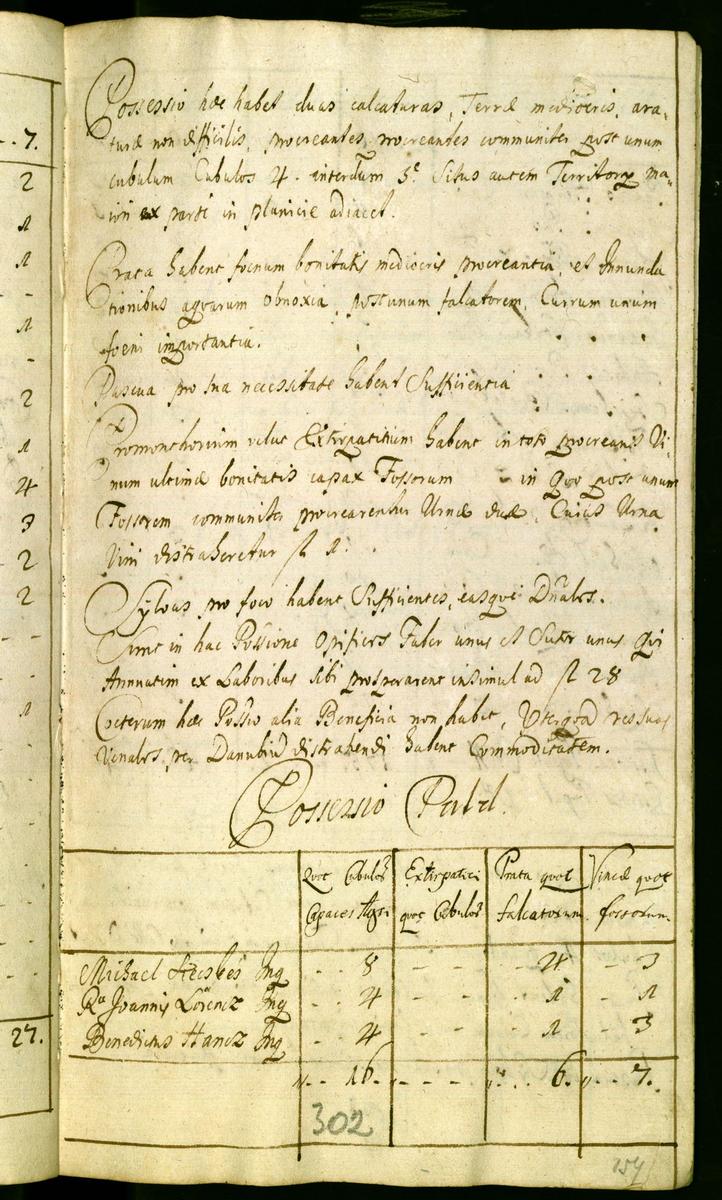 Possessio hæc habet duas calcaturas, Terræ mediocris, ara-
turæ non difficilis, procreantes, procreantes communiter post unum
cubulum Cubulos 4. interdum 5. Situs autem Territorij ma-
iori ex parte in planicie adiacet.
Prata habent foenum bonitatis mediocris procreantia, et Innunda
tionibus aquarum obnoxia, post unum falcatorem, Currum unum
foeni importantia.
Pascua pro sua necessitate habent Sufficientia
Promonthorium velut Extirpatitium habent in toto procreans Vi-
num ultimæ bonitatis capax Fossorum - in quo post unum
Fossorem communiter procrearentur Urnæ duæ, Cuius Urna
Vini distraheretur fl 1.
Sylvas pro foco habent Sufficientes, easque Dnales.
Sunt in hac Possione Opifices Faber unus et Sutor unus qui
Annuatim ex Laboribus sibi prosperarent insimul ad fl 28
Coeterum hæc Possio alia Beneficia non habet, Uterqod res suas
Venales, per Danubiũ distrahendi habent Commoditatem.
Possessio Patd.
Quot Cubulor Capaces Agri | Extirpatici quot Cubulor | Prata quot falcatorum | Vineæ quot fossorum
Michael Inq - - 8 - - - - 4 - 3
Ra Joannis Lörincz Inq - - 4 - - - - 1 - 1
Benedictus Hancz Inq - 4 - - - - 1 - 3
16. - - - 6. - - 7.
302
154
7.
2
1
1
-
1
-
2
1
4
3
2
2
-
-
1
-
27.